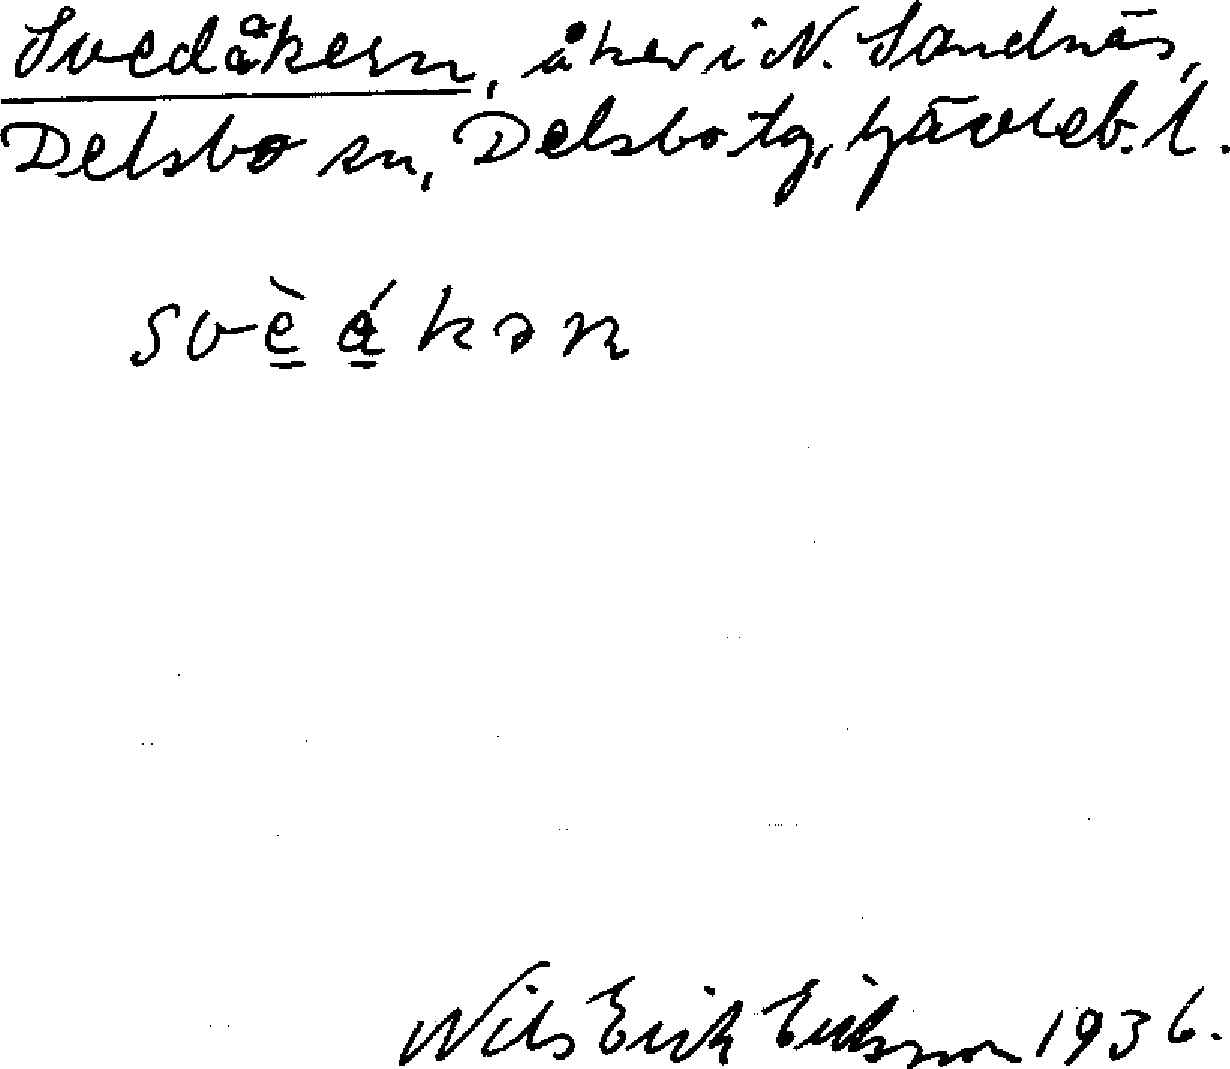 Svedåkern, åker i N. Sandnäs,
Delsbo sn, Delsbo tg, Gävleb. l.
svè̳ á̳kən
Nils Erik Eriksson 1936.